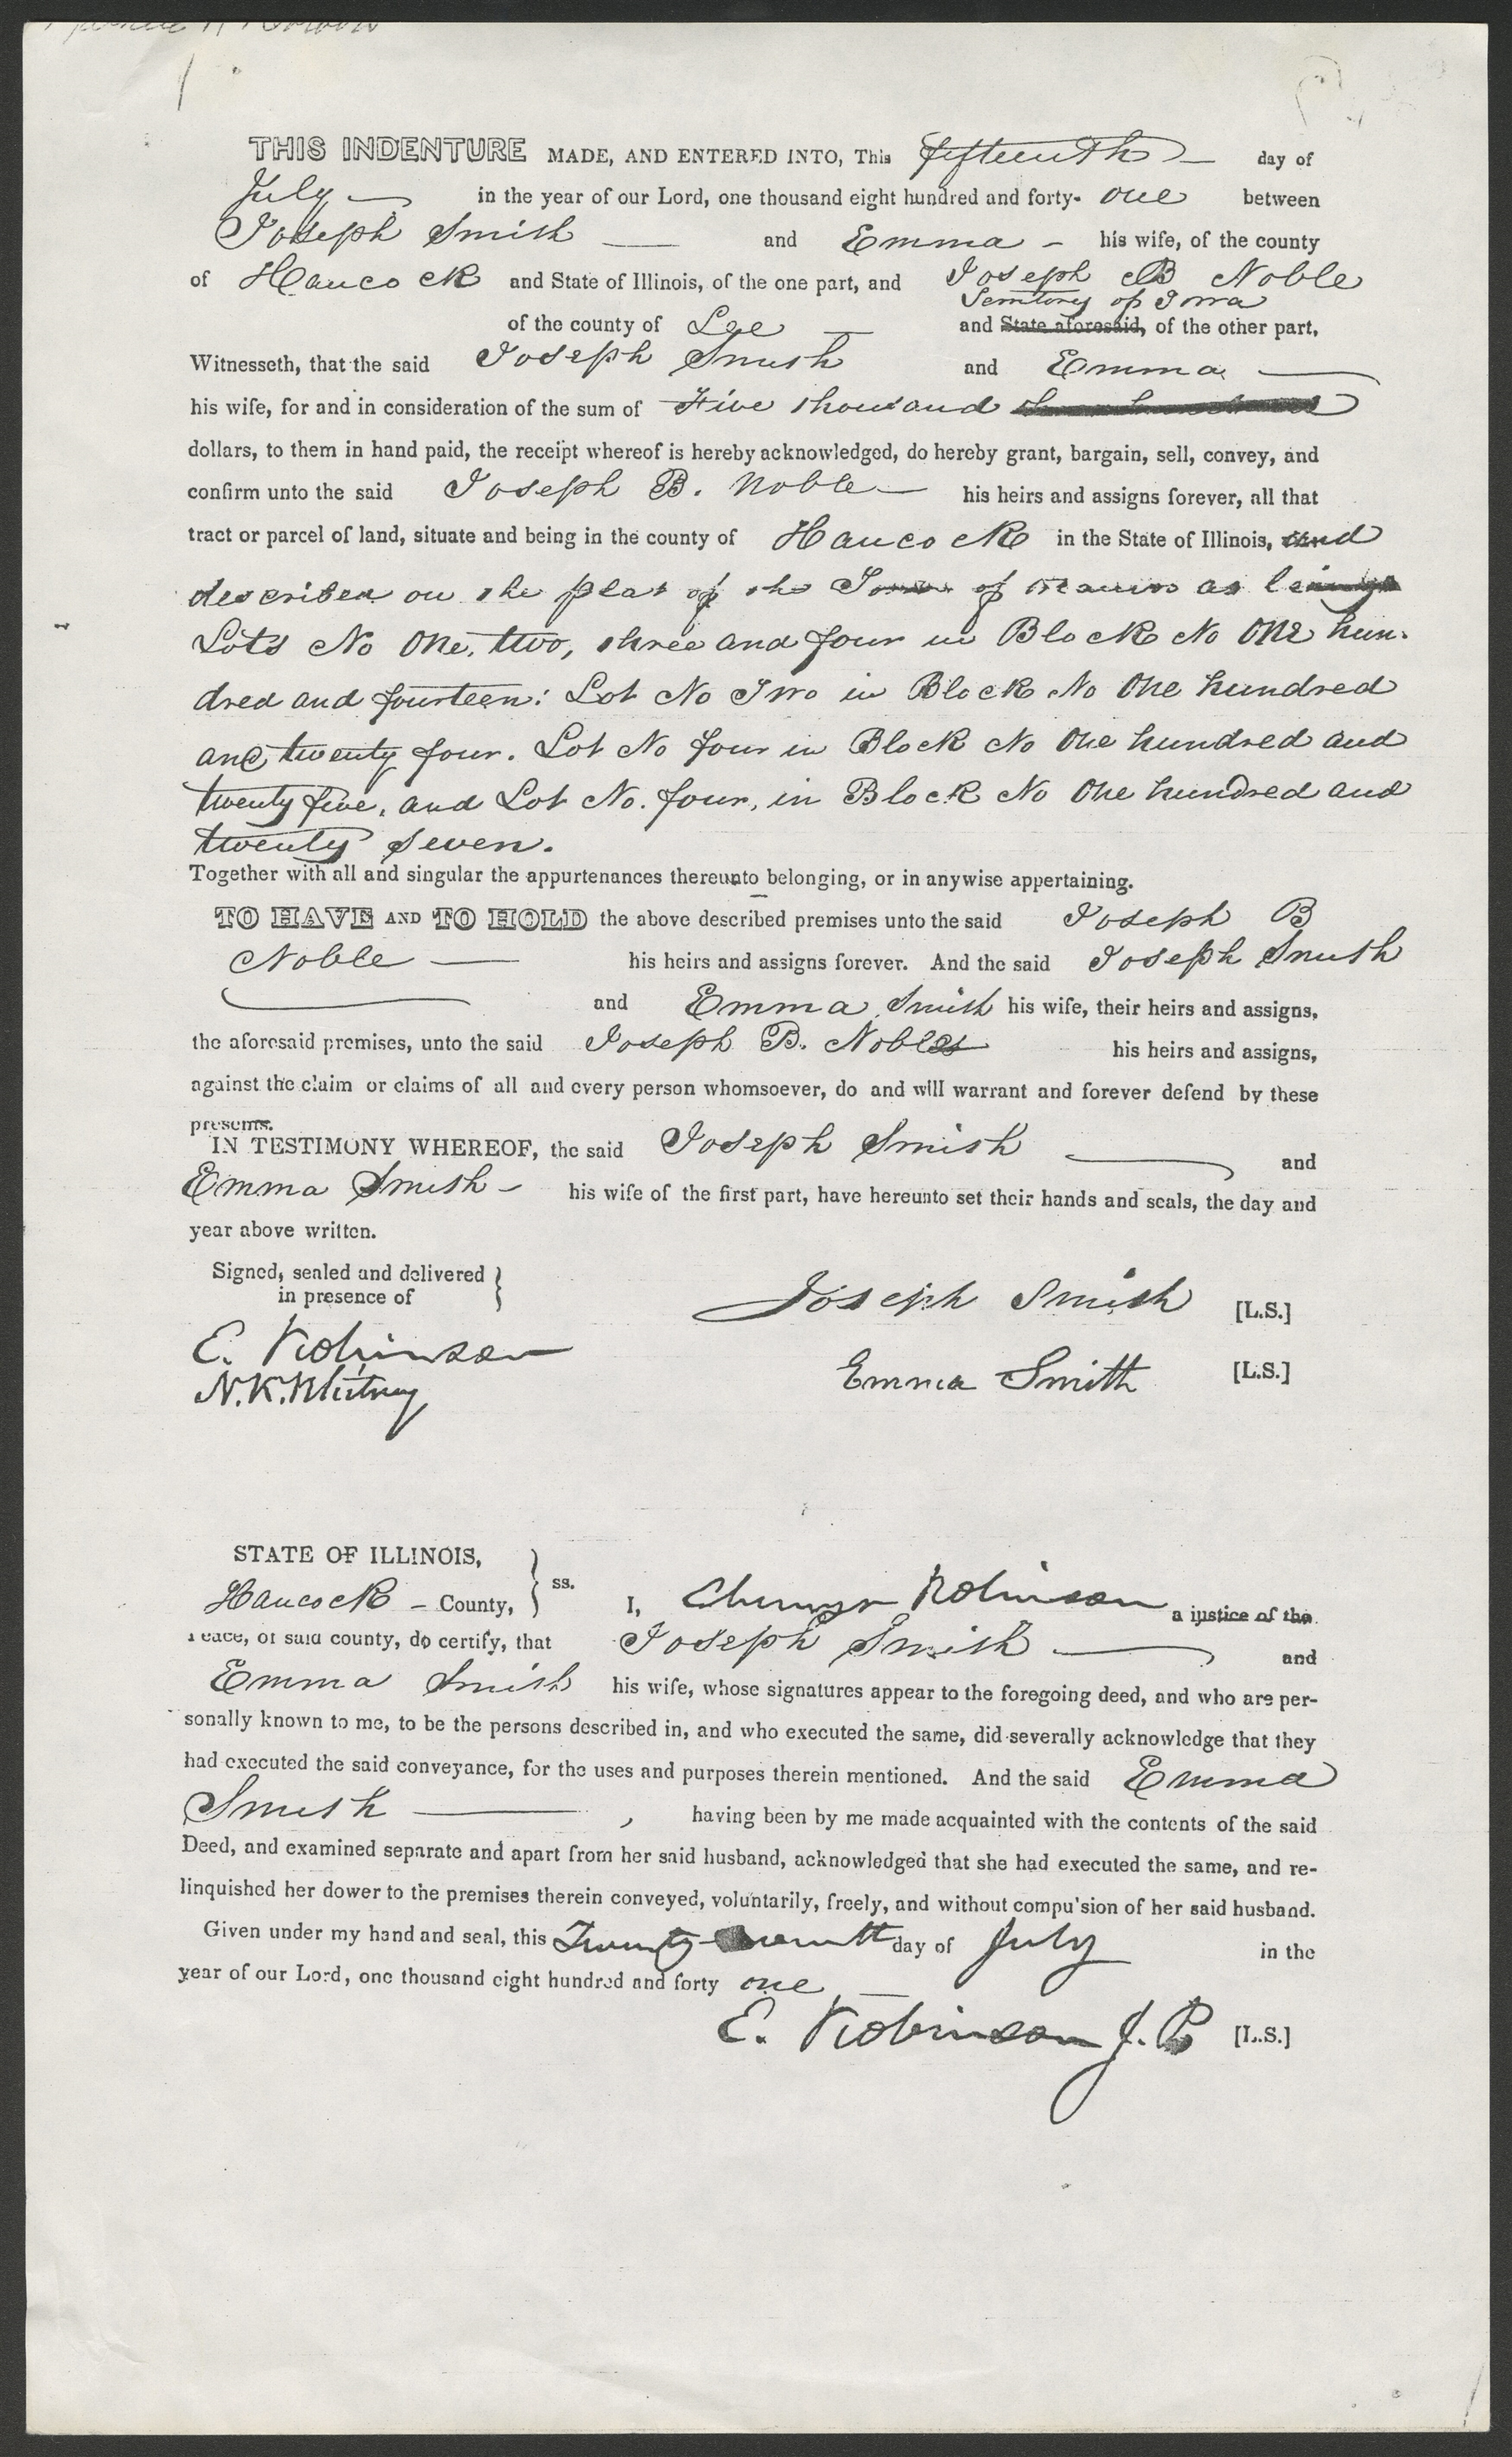 THIS INDENTURE MADE, AND ENTERED INTO, This fifteenth day of
July in the year of our Lord, one thousand eight hundred and forty- one between
Joseph Smith and Emma his wife, of the county
of Hancock and State of Illinois, of the one part, and Joseph B Noble
Territory of Iowa
of the county of Lee and State aforesaid, of the other part,
Witnesseth, that the said Joseph Smith and Emma
his wife, for and in consideration of the sum of Five thousand
dollars, to them in hand paid, the receipt whereof is hereby acknowledged, do hereby grant, bargain, sell, convey, and
confirm unto the said Joseph B. Noble his heirs and assigns forever, all that
tract or parcel of land, situate and being in the county of Hancock in the State of Illinois, and
described on the plat of the Town of Nauvoo as
Lots No One, two, three and four in Block No One hun-
dred and fourteen: Lot No Two in Block No One hundred
and twenty four. Lot No four in Block No One hundred and
twenty five, and Lot No. four, in Block No One hundred and
twenty seven.
Together with all and singular the appurtenances thereunto belonging, or in anywise appertaining.
TO HAVE AND TO HOLD the above described premises unto the said Joseph B
Noble his heirs and assigns forever. And the said Joseph Smith
and Emma Smith his wife, their heirs and assigns,
the aforesaid premises, unto the said Joseph B. Nobles his heirs and assigns,
against the claim or claims of all and every person whomsoever, do and will warrant and forever defend by these
presents.
IN TESTIMONY WHEREOF, the said Joseph Smith and
Emma Smith - his wife of the first part, have hereunto set their hands and seals, the day and
year above written.
Signed, sealed and delivered
in presence of
Joseph Smith [L.S.]
E. Robinson
Emma Smith [L.S.]
N.K. Whitney
STATE OF ILLINOIS,
ss.
Hancock - County, I, Ebenezer Robinson a justice of the
Peace, of said county, do certify, that Joseph Smith and
Emma Smith his wife, whose signatures appear to the foregoing deed, and who are per-
sonally known to me, to be the persons described in, and who executed the same, did severally acknowledge that they
had executed the said conveyance, for the uses and purposes therein mentioned. And the said Emma
Smith , having been by me made acquainted with the contents of the said
Deed, and examined separate and apart from her said husband, acknowledged that she had executed the same, and re-
linquished her dower to the premises therein conveyed, voluntarily, freely, and without compu'sion of her said husband.
Given under my hand and seal, this Twenty seventh day of July in the
year of our Lord, one thousand eight hundred and forty one
E. Robinson J.P. [L.S.]